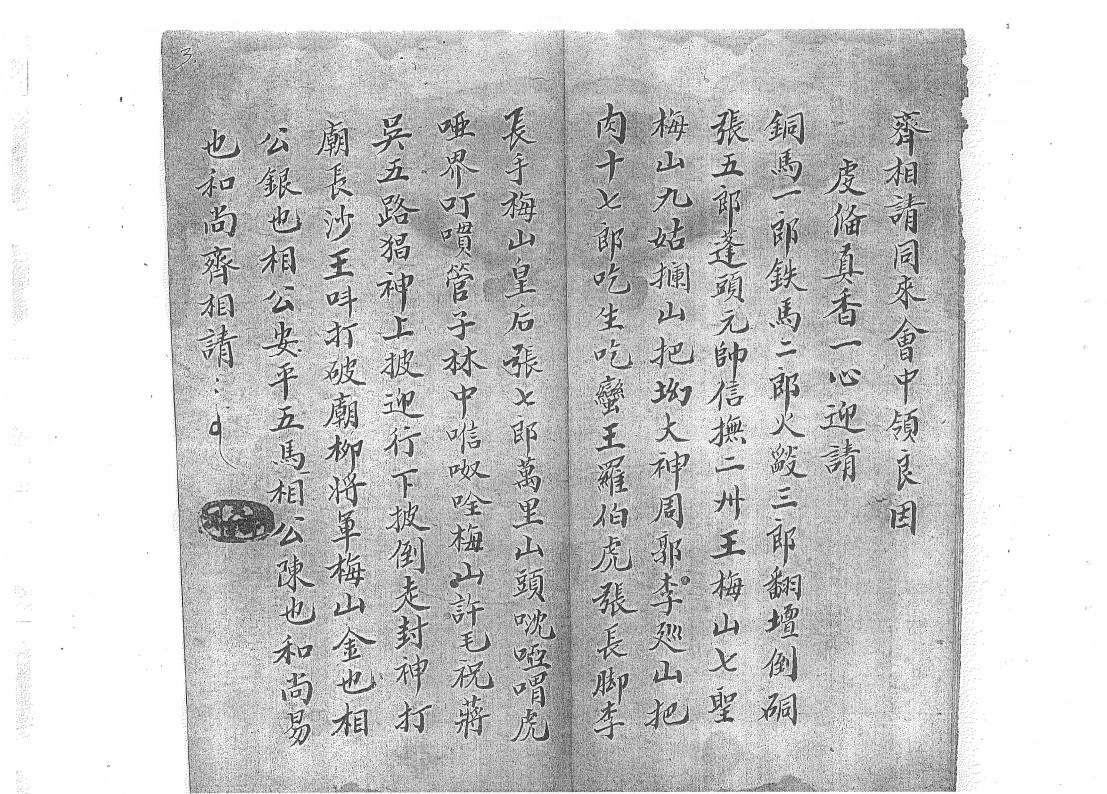 3
齊相請同來會中領良因
虔俻真香一心迎請
銅馬一郎鉄馬二郎火毀三郎翻壇倒硐
張五郎蓬頭元帥信撫二卅王梅山七聖
梅山九姑攔山把坳大神周郭李廵山把
肉十七郎吃生吃蠻王羅伯虎張長脚李
長手梅山皇后張七郎萬里山頭啞喟虎
啞界叮嘪管子林中唁呶唑梅山許毛祝蔣
吳五路猖神上披迎行下披倒走封神打
廟長沙王呌打破廟柳將軍梅山金也相
公銀也相公安平五馬相公陳也和尚易
也和尚齊相請